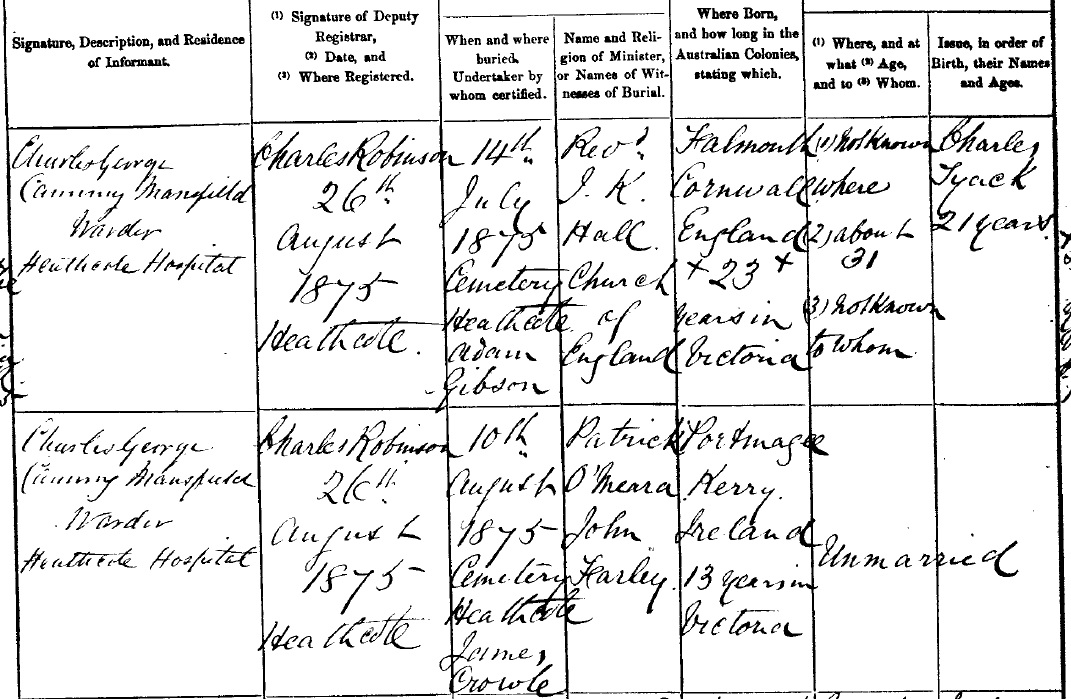 Signature, Description, and Residence
of Informant.
(1) Signature of Deputy
Registrar,
(2) Date, and
(3) Where Registered.
When and where
buried.
Undertaker by
whom certified.
Name and Reli-
gion of Minister,
or Names of Wit-
nesses of Burial.
Where Born,
and how long in the
Australian Colonies,
stating which.
(1) Where, and at
what (2) Age,
and to (3) Whom.
Issue, in order of
Birth, their Names
and Ages.
Charles George
Canning Mansfield
Warder
Heathcote Hospital
Charles Robinson
26th
August
1875
Heathcote.
14th
July
1875
Cemetery
Heathcote
Adam
Gibson
Revd.
J. K.
Hall.
Church
of
England
Falmouth
Cornwall
England
+ 23 +
years in
Victoria
(1) Not Known
where
(2) about
31
(3) Not Known
to whom
Charles
Tyack
21 years.
Charles George
Canning Mansfield
Warder
Heathcote Hospital
Charles Robinson
26th
August
1875
Heathcote
10th
August
1875
Cemetery
Heathcote
James
Crowle
Patrick
O'Meara
John
Farley.
Portmagee
Kerry.
Ireland
13 years in
Victoria
Unmarried